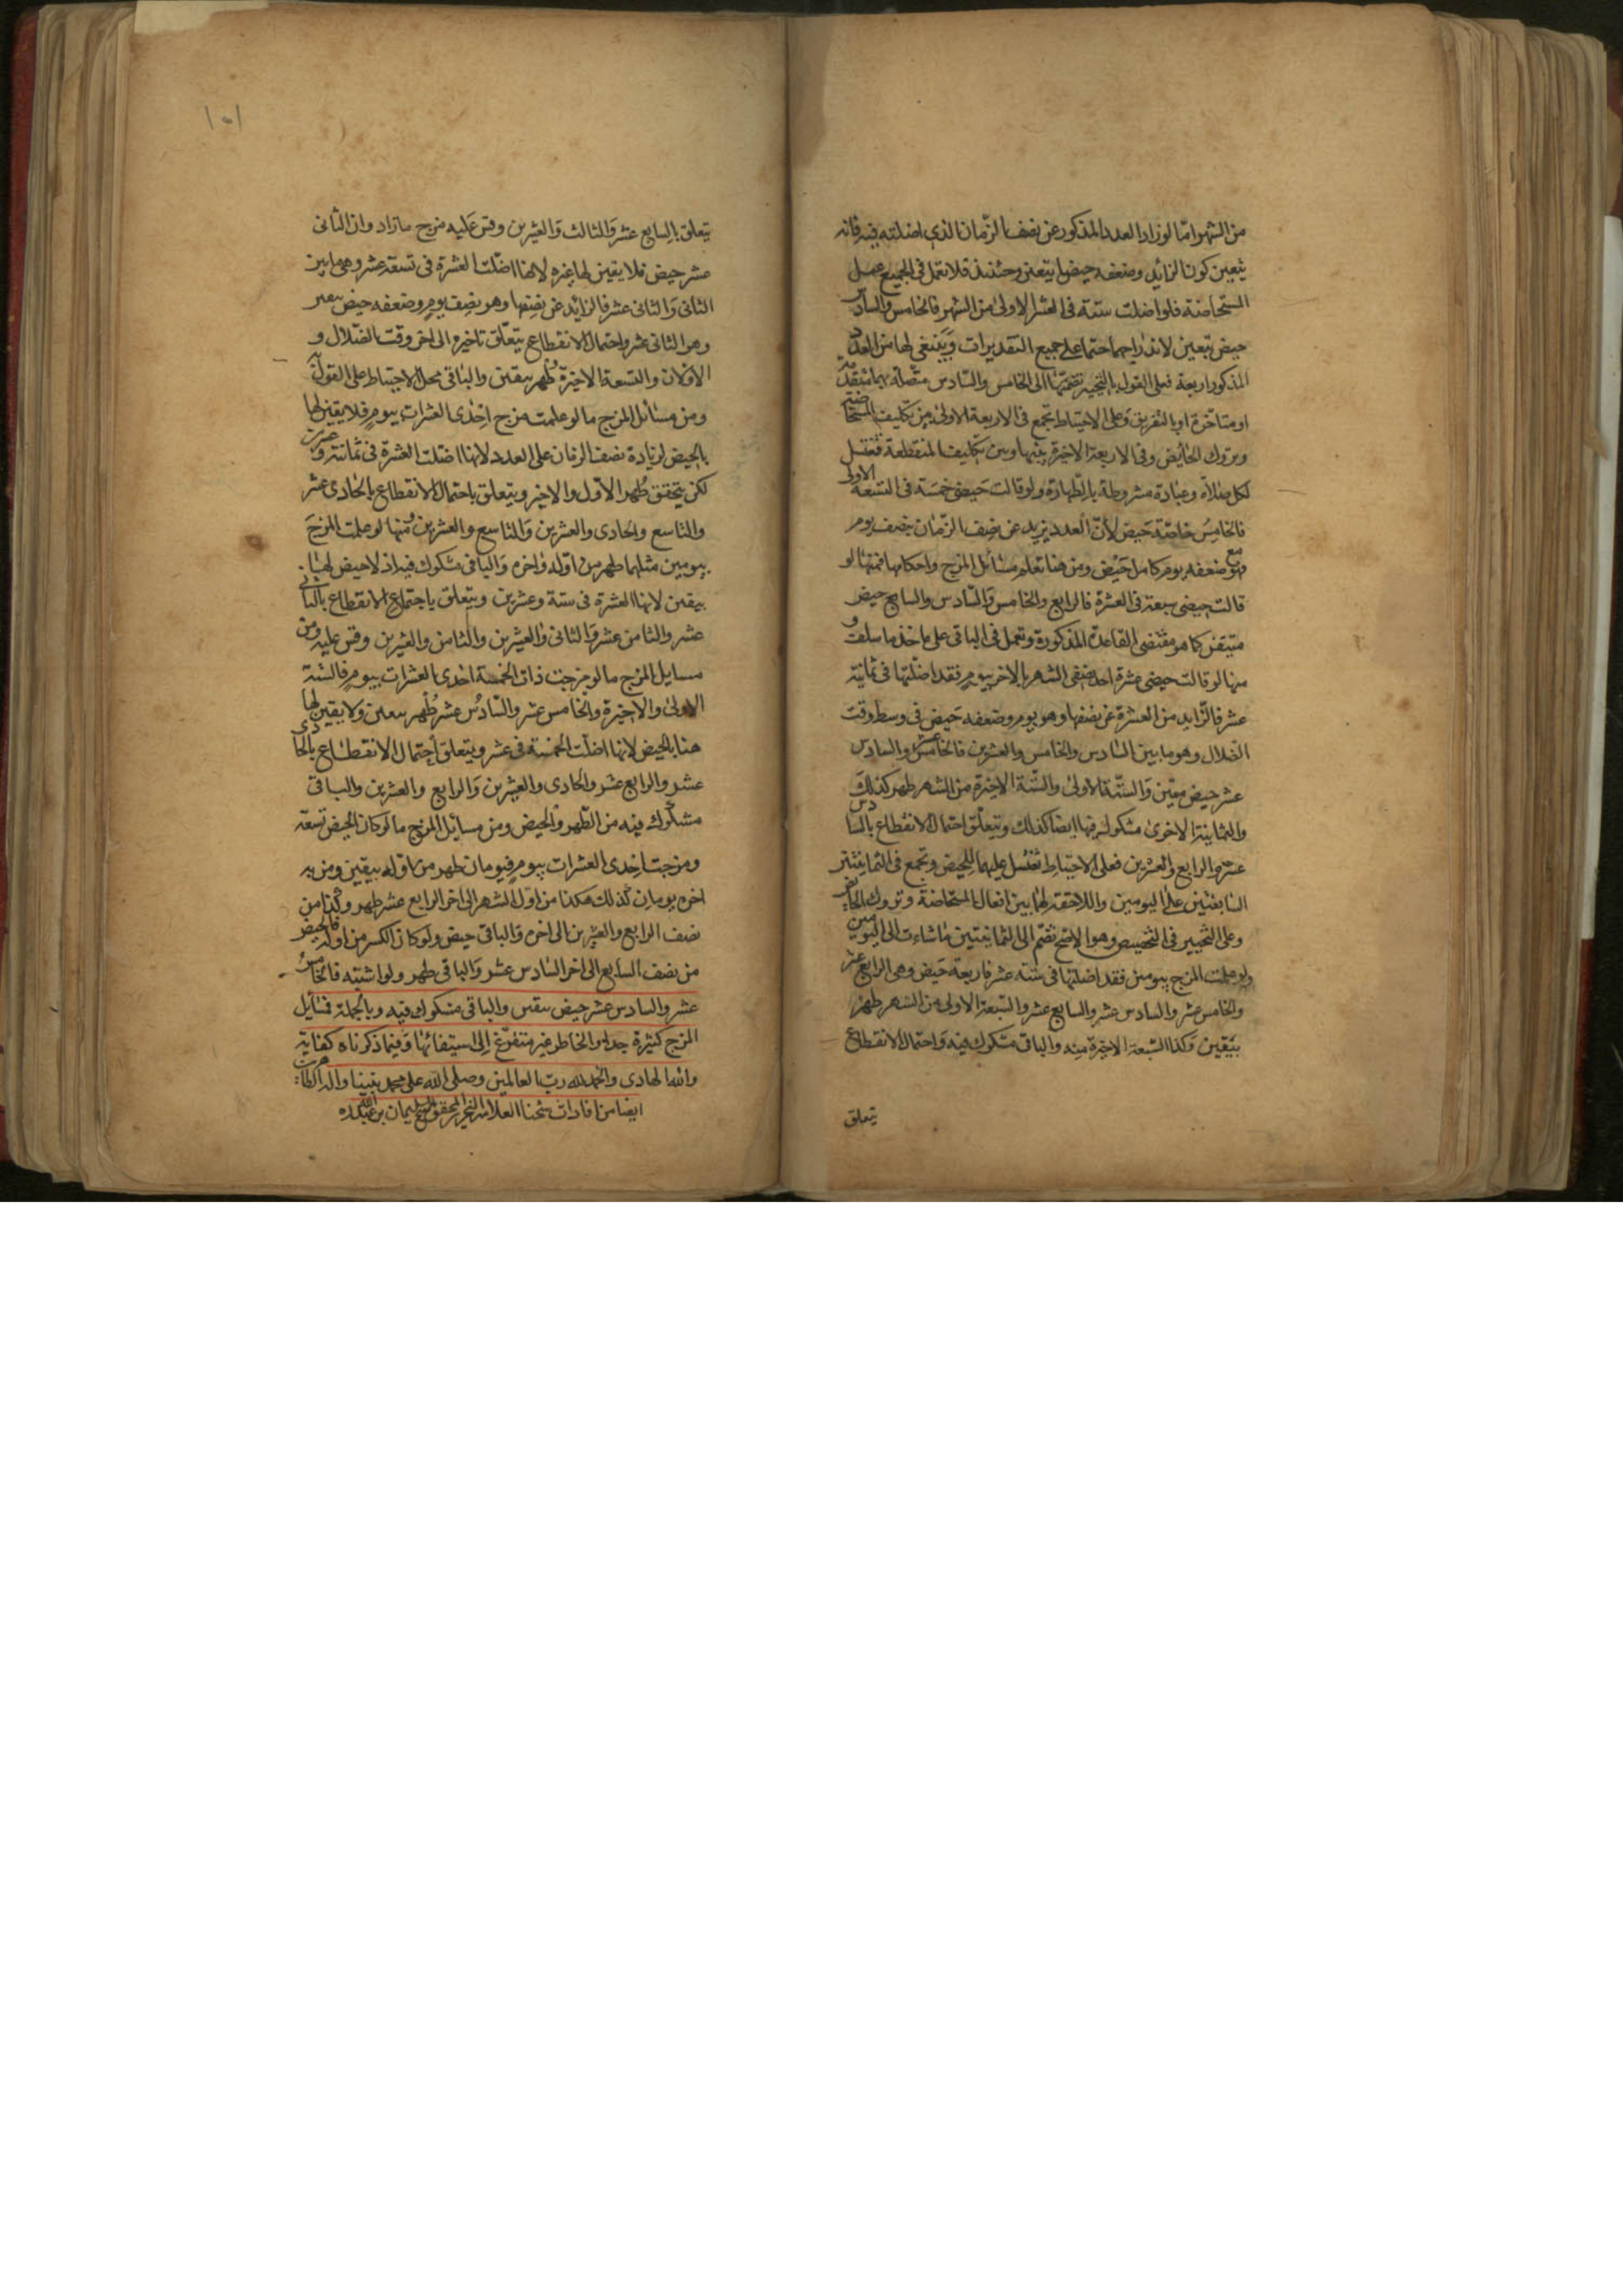 من الشهر امّا لو زاد العدد المذكور عن نصف الزّمان الذي اضلته فيه فانه
يتعين كون الزائد وضعفه حيضا بتعين وحينئذ فلا تعمل في الجميع عمل
المستحاضة فلو اضلت ستة في العشر الاولى من الشهر فالخامس والسادس
حيض بتعين لاندراجهما حتما على جميع التقديرات وينبغي لها من العدد
المذكور اربعة فعلى القول بالتخيير تضمّها الى الخامس والسّادس متصلة بهما متقدمة
او متاخرة او بالتفريق وعلى الاحتياط تجمع في الاربعة الاولى بين تكليف المستحاضة
وتروك الحائض وفي الاربعة الاخيرة بينهما وبين تكليف المنقطعة فتغتسل
لكل صلاة وعبادة مشروطة بالطهارة ولو قالت حيضي خمسة في التسعة الاولى
فالخامس خاصّة حيض لأنّ العدد يزيد عن نصف الزّمان بنصف يوم
فهو مع ضعفه يوم كامل حيض ومن هنا تعلم مسائل المزج واحكامها فمنها لو
قالت حيضي سبعة في العشرة فالرابع والخامس والسّادس والسابع حيض
متيقن كما هو مقتضى القاعدة المذكورة وتعمل في الباقي على ما خذ ما سلف و
منها لو قالت حيضي عشرة احد نصفي الشهر بالاخر بيوم فقد اضلّتها في ثمانية
عشر فالزايد من العشرة عن نصفها وهو يوم وضعفه حيض في وسط وقت
الضلال وهو ما بين السّادس والخامس والعشرين فالخامس عشر والسادس
عشر حيض معيّن والستّة الاولى والستّة الاخيرة من الشهر طهر كذلك
والثمانية الاخرى مشكوك فيها ايضا كذلك ويتعلّق احتمال الانقطاع بالسادس
عشر والرابع والعشرين فعلى الاحتياط تغتسل عليهما للحيض وتجمع في الثمانيتين
السابقتين على اليومين واللاحقة لهما بين افعال المستحاضة وتروك الحائض
وعلى التخيير في التخصيص وهو الاصح تضم الى الثمانيتين ما شاءت الى اليومين
ولو علمت المزج بيومين فقد اضلتها في ستة عشر فاربعة حيض وهي الرابع عشر
والخامس عشر والسادس عشر والسابع عشر والسّبعة الاولى من الشهر طهر
بيقين وكذا السّبعة الاخيرة منه والباقي مشكوك فيه واحتمال الانقطاع
يتعلق
١٥١
يتعلق بالسابع عشر والثالث والعشرين وقس عليه مزج ما زاد وان الثاني
عشر حيض فلا يقين لها غيره لانها اضلّت العشرة في تسعة عشر وهي ما بين
الثاني والثاني عشر فالزائد عن نصفها وهو نصف يوم وضعفه حيض
وهو الثاني عشر واحتمال الانقطاع يتعلّق تاخيره الى اخر وقت الضلال و
الاوّلان والتسعة الاخيرة طهر بيقين والباقي محل الاحتياط على القول
ومن مسائل المزج ما لو علمت مزج احدى العشرات بيوم فلا يقين لها
بالحيض لزيادة نصف الزمان على العدد لانها اضلت العشرة في ثمانية وعشرين
لكن يتحقق طهر الاول والاخير ويتعلق باحتمال الانقطاع بالحادي عشر
والتاسع والحادي والعشرين والتاسع والعشرين ومنها لو علمت المزج
بيومين مثلهما طهر من اوّله واخره والباقي مشكوك فيه اذ لا حيض لها
بيقين لانها العشرة في ستة وعشرين ويتعلق باجتماع الانقطاع بالثاني
عشر والثامن عشر والثاني والعشرين والثامن والعشرين وقس عليه ومن
مسايل المزج ما لو مزجت ذات الخمسة احدى العشرات بيوم فالستة
الاولى والاخيرة والخامس عشر والسّادس عشر طهر بيقين ولا يقين لها
هنا بالحيض لانها اضلّت الخمسة في عشر ويتعلق احتمال الانقطاع بالحادي
عشر والرابع عشر والحادي والعشرين والرابع والعشرين والباقي
مشكوك فيه من الطّهر والحيض ومن مسايل المزج ما لو كان الحيض تسعة
ومزجت احدى العشرات بيوم فيومان طهر من اوله بيقين ومن
اخره يومان كذلك هكذا من اوّل الشهر الى اخر الرابع عشر طهر وكذا من
نصف الرابع والعشرين الى اخره والباقي حيض ولو كان الكسر من اوله فالحيض
من نصف السابع الى اخر السّادس عشر والباقي طهر ولو اشتبه فالخامس
عشر والسادس عشر حيض بيقين والباقي مشكوك فيه وبالجملة فمسائل
المزج كثيرة جدا والخاطر غير متفرّغ الى استيفائها وفيما ذكرناه كفاية
والله الهادي والحمد لله ربّ العالمين وصلى الله على محمد نبينا واله الطاهرين
ايضا من افادات شيخنا العلامة النحرير المحقق الشيخ سليمان بن عبد الله